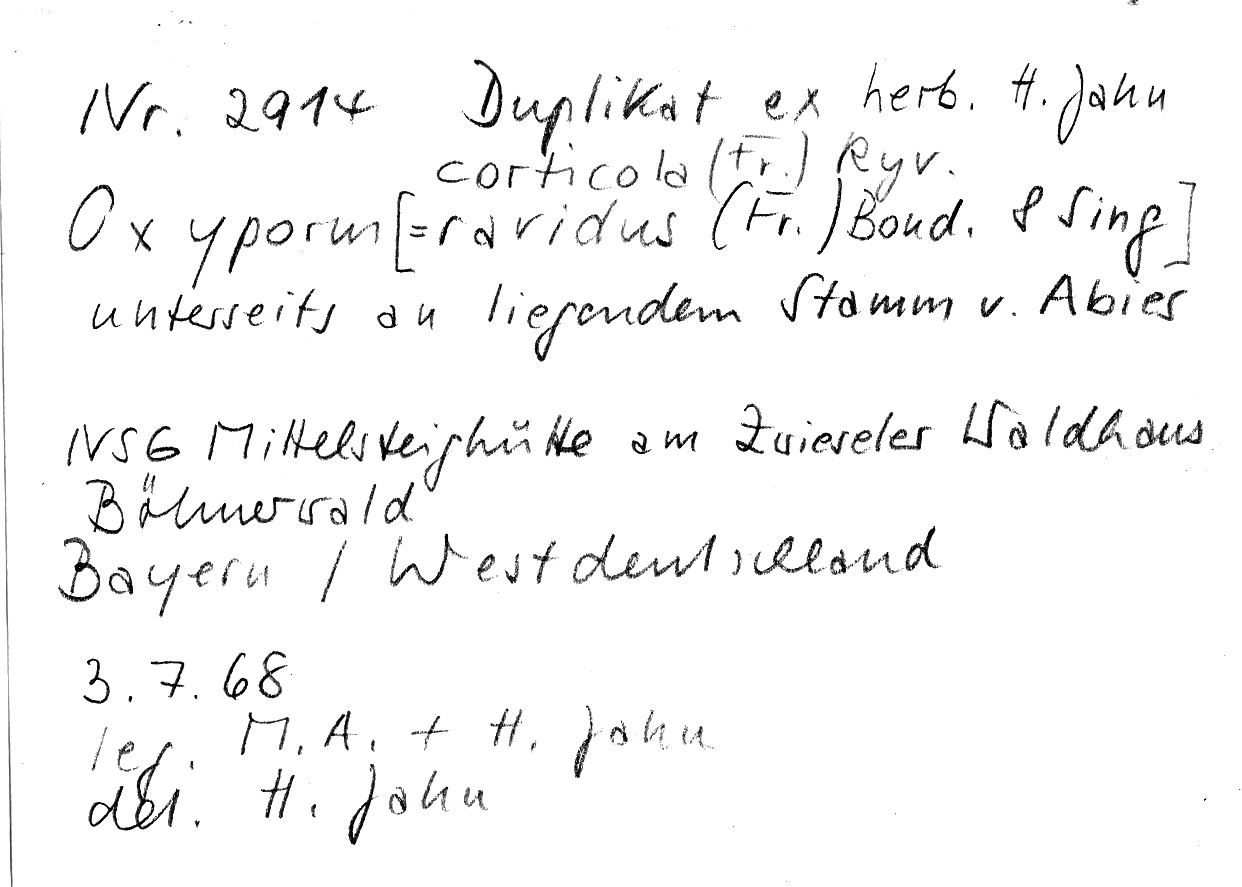 Nr. 2914 Duplikat ex herb. H. Jahn
corticola (Fr.) Ryv.
Oxyporus [= ravidus (Fr.) Bond. & Sing]
unterseits an liegendem Stamm v. Abies
NSG Mittelsteighütte am Zwieseler Waldhaus
Böhmerwald
Bayern / Westdeutschland
3. 7. 68
leg. M. A. + H. Jahn
det. H. Jahn